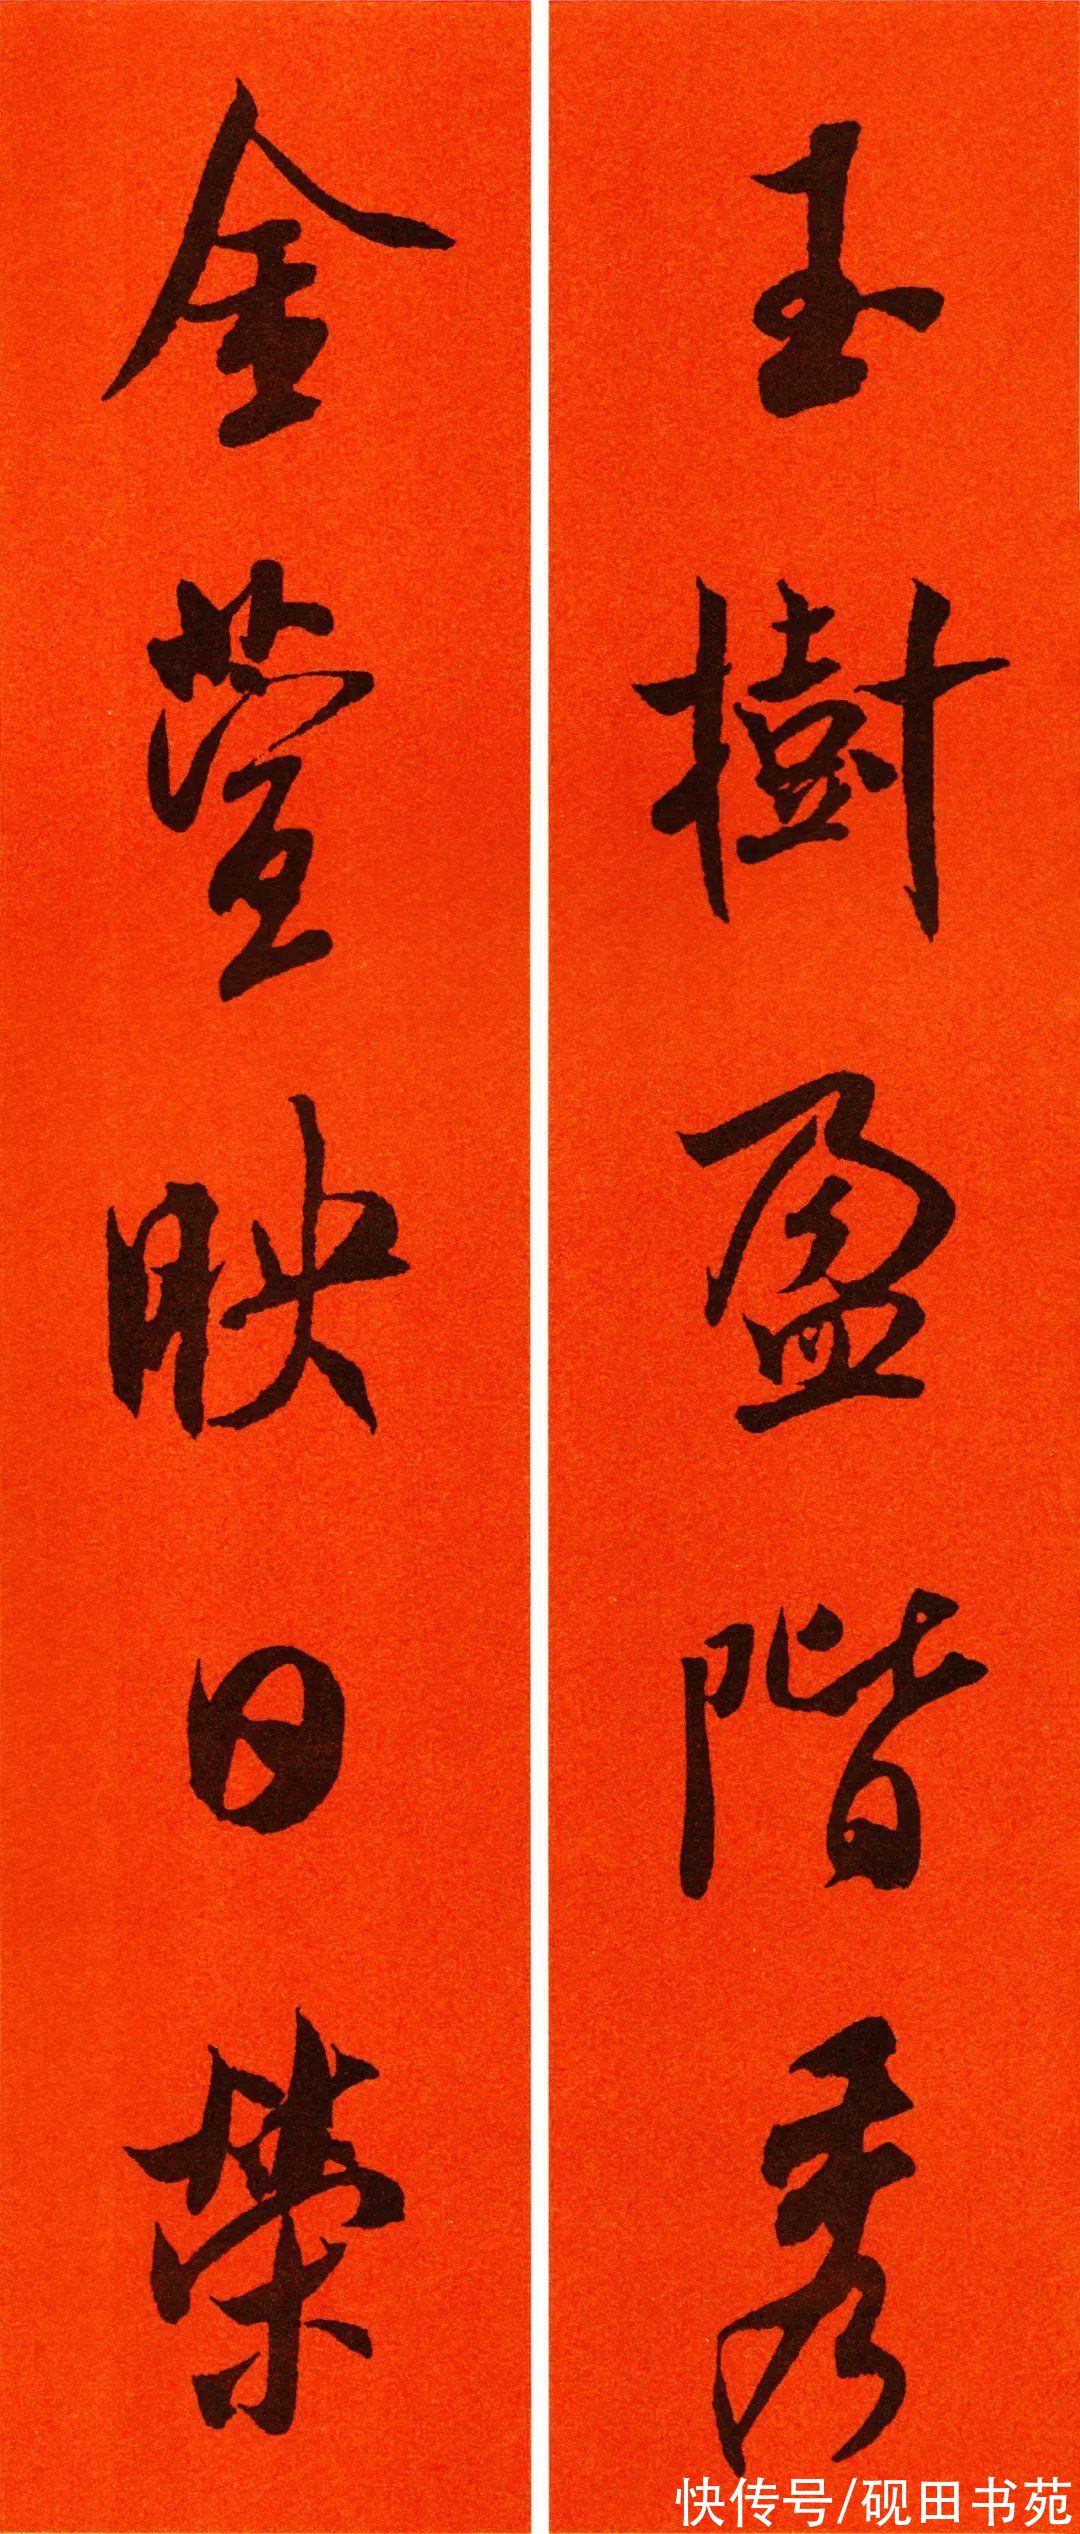 玉樹盈階秀
金萱映日榮
快传号/砚田书苑